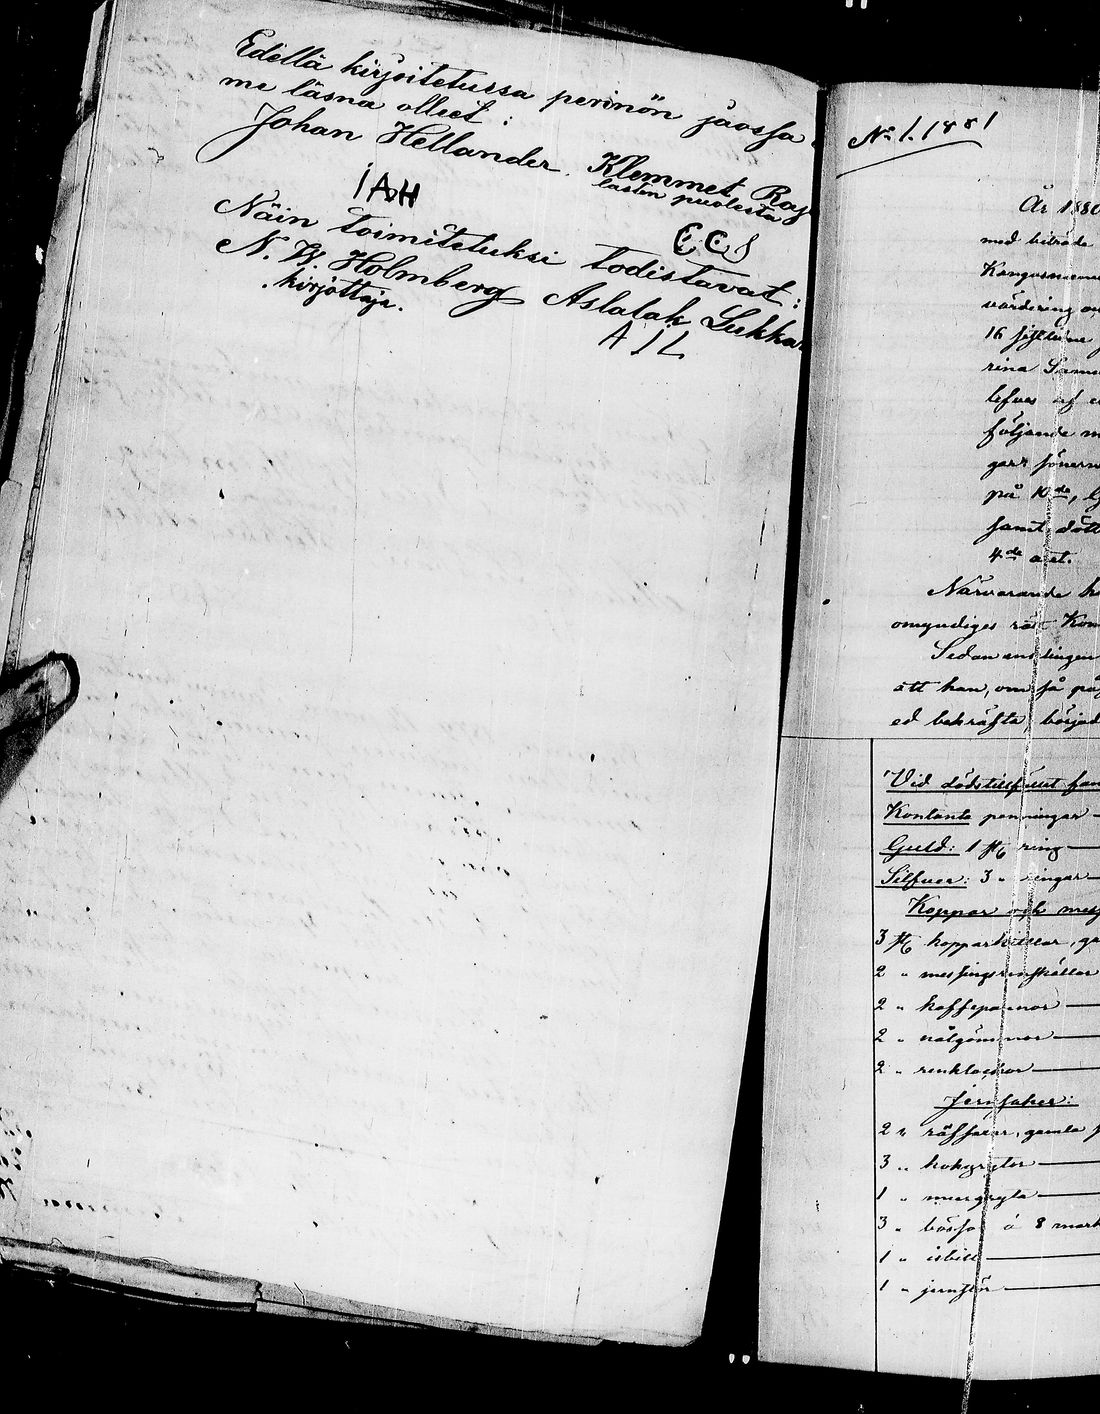 Edellä kirjoitetussa perinön jaossa
me läsna olleet:
Johan Hellander. Klemmet
lasten puolesta
IAH
Näin toimitetuksi todistavat:
N. W Holmberg Aslalak Lukkar
kirjottaja.
A I L
No 1. 1881
År 1880
med biträde
värdering
16 sistlidne
rina
lefver af
följande
på 10de,
samt dött
4de a et.
Närvarande
omyndiges rätt
Sedan
att han, om så
ed bekräfta, börjad
Vid dödstillfället fan
Kontanta penningar
Guld: 1 st ring
Silfver: 3 " ringar
Koppar och mes
3 st kopparkittlar, ga
2 "
2 " kaffepannor
2 " nålgömmor
2 " renklockor
Jernsaker:
2 " räfsaxar, gamla
3 " kokgrytor
1 " murgryta
3 " bössor á 8 mark
1 " isbill
1 " jernstör